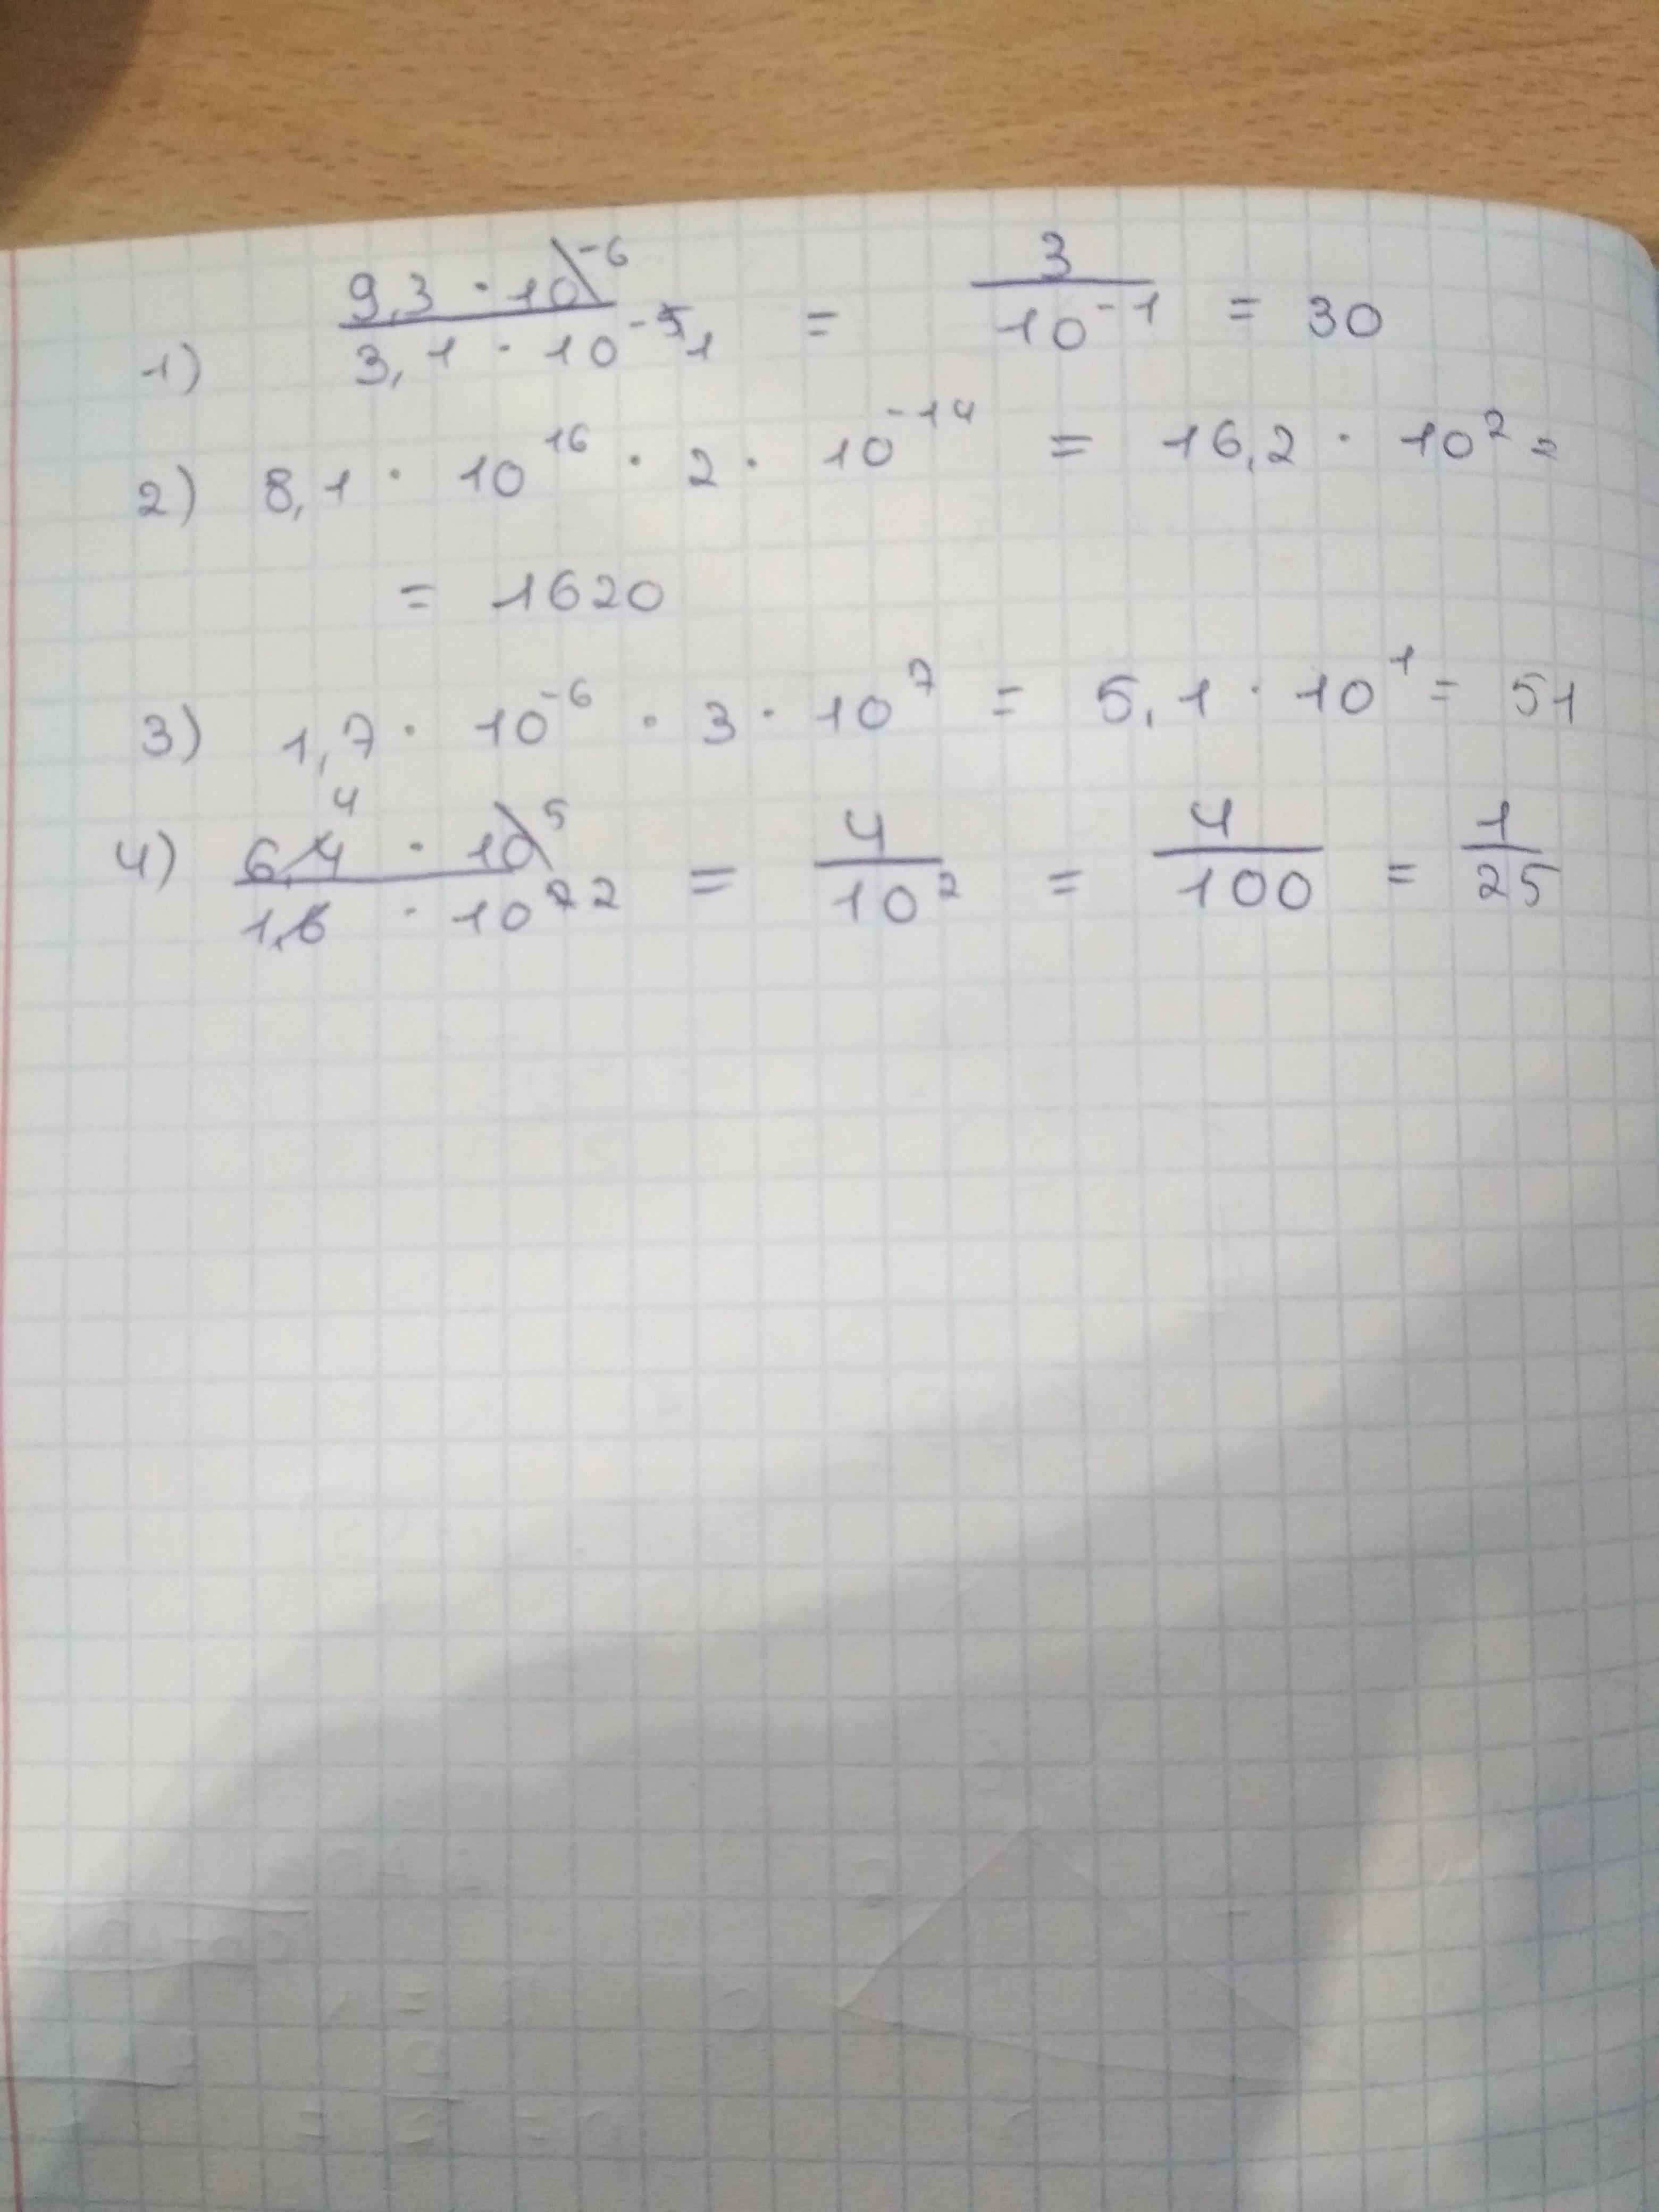 1) 9,3 · 10⁻⁶ / 3,1 · 10⁻⁵ ₁ = 3 / 10⁻¹ = 30
2) 8,1 · 10¹⁶ · 2 · 10⁻¹⁴ = 16,2 · 10² =
= 1620
3) 1,7 · 10⁻⁶ · 3 · 10⁷ = 5,1 · 10¹ = 51
4) 6,4 ⁴ · 10⁵ / 1,6 · 10⁷ ² = 4 / 10² = 4 / 100 = 1 / 25